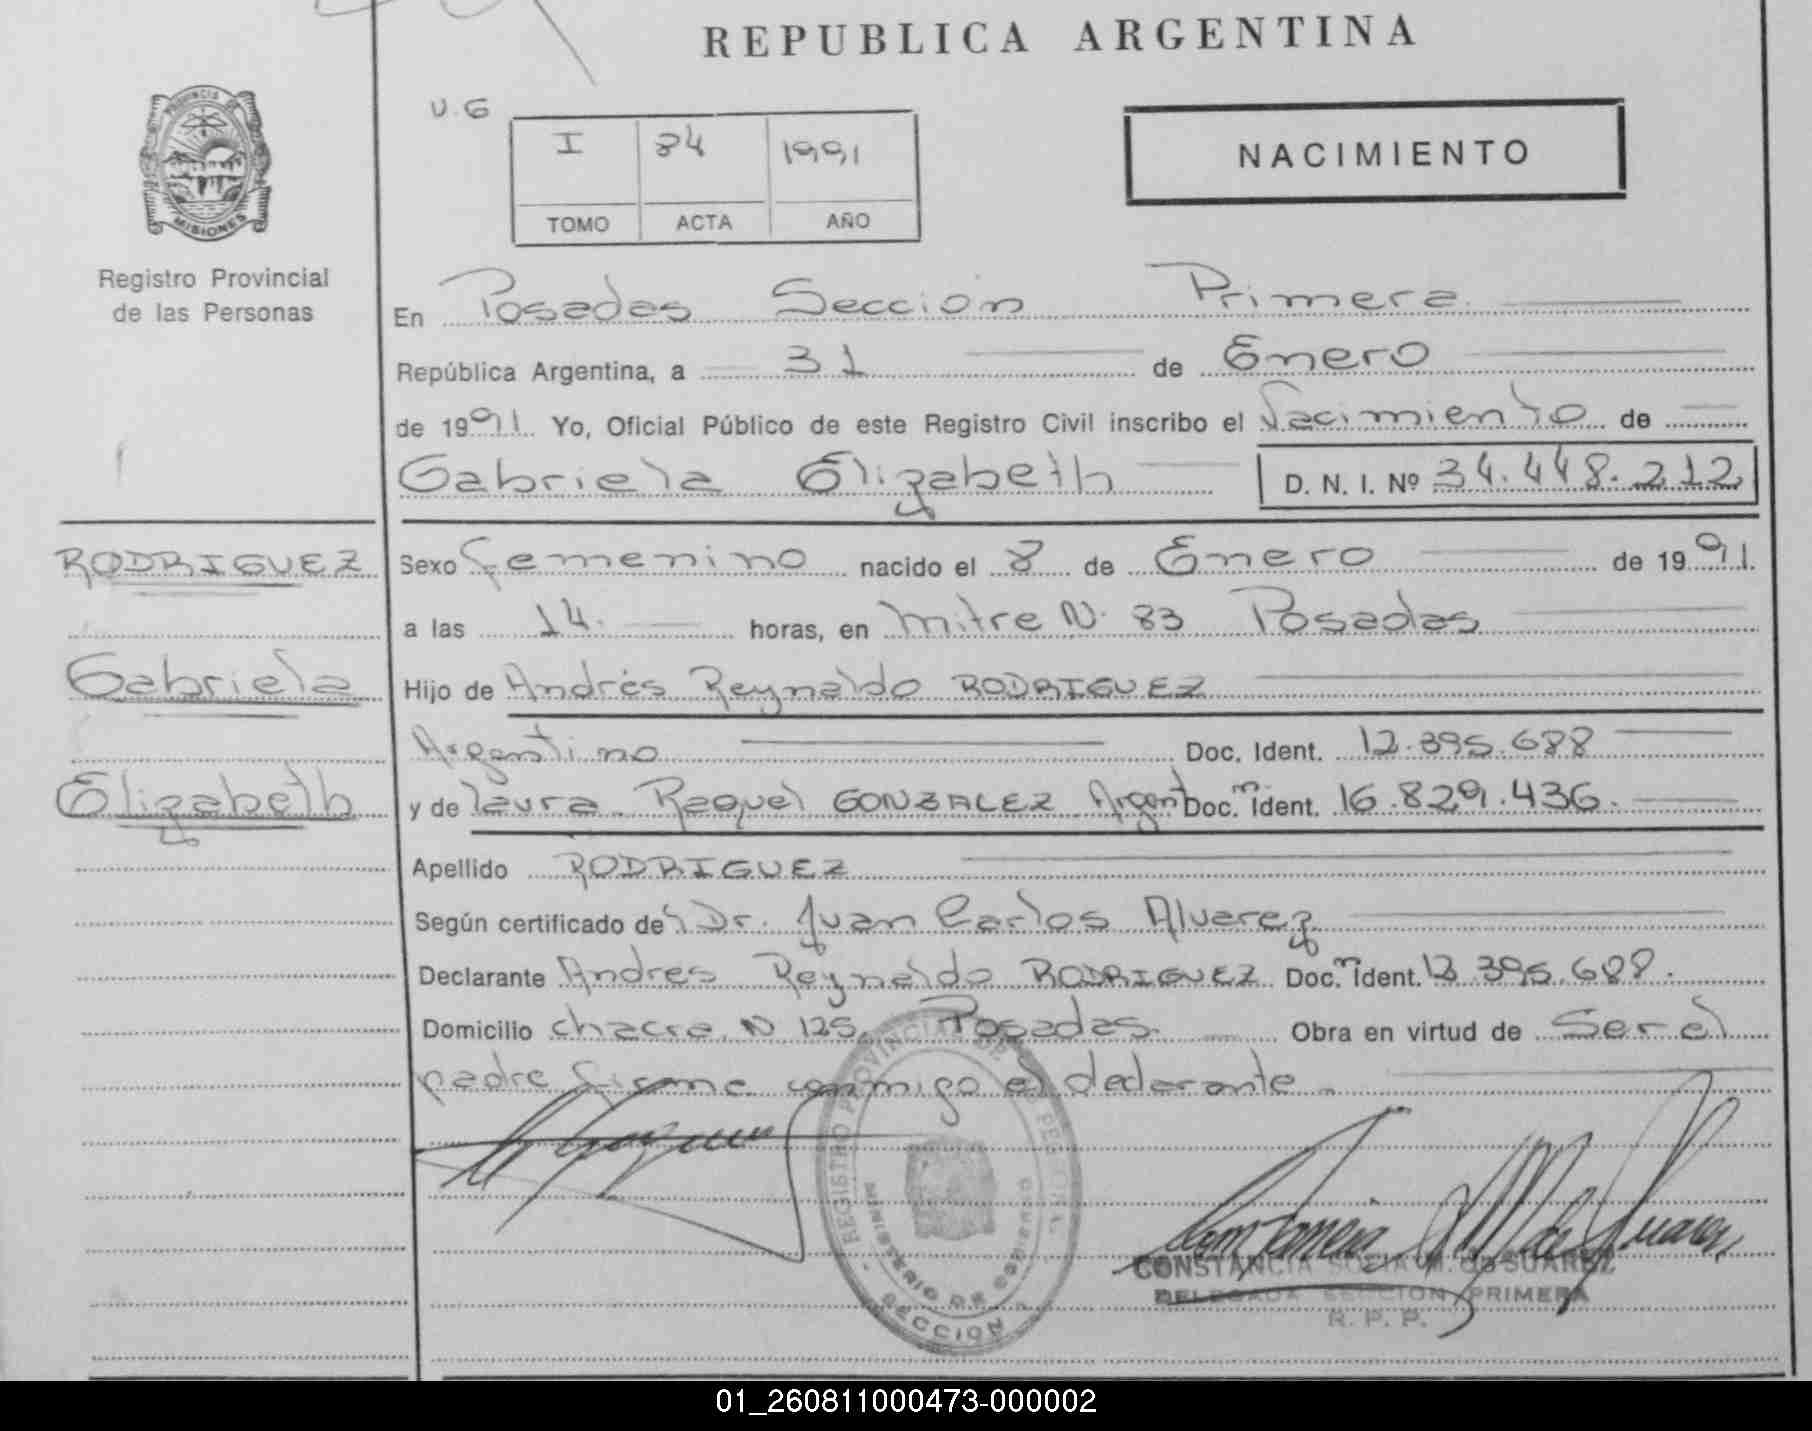 REPUBLICA ARGENTINA
PROVINCIA DE
MISIONES
Registro Provincial
de las Personas
U.G
I 84 1991
TOMO ACTA AÑO
NACIMIENTO
En Posadas Sección Primera
República Argentina, a 31 de Enero
de 1991. Yo, Oficial Público de este Registro Civil inscribo el Nacimiento de
Gabriela Elizabeth D. N. I. Nº 34.448.212
RODRIGUEZ
Gabriela
Elizabeth
Sexo femenino nacido el 8 de Enero de 1991.
a las 14. horas, en Mitre N. 83 Posadas
Hijo de Andrés Reynaldo RODRIGUEZ
Argentino Doc. Ident. 12.395.688
y de laura Raquel GONZALEZ Argent Doc.m Ident. 16.829.436.
Apellido RODRIGUEZ
Según certificado del Dr. Juan Carlos Alvarez
Declarante Andres Reynaldo RODRIGUEZ Doc.m Ident. 12.395.688.
Domicilio chacra N 125. Posadas. Obra en virtud de Ser el
padre firma conmigo el declarante.
REGISTRO PROVINCIAL DE LAS PERSONAS
MINISTERIO DE GOBIERNO
SECCION
CONSTANCIA SOFIA M. de SUAREZ
DELEGADA SECCION PRIMERA
R. P. P.
01_260811000473-000002